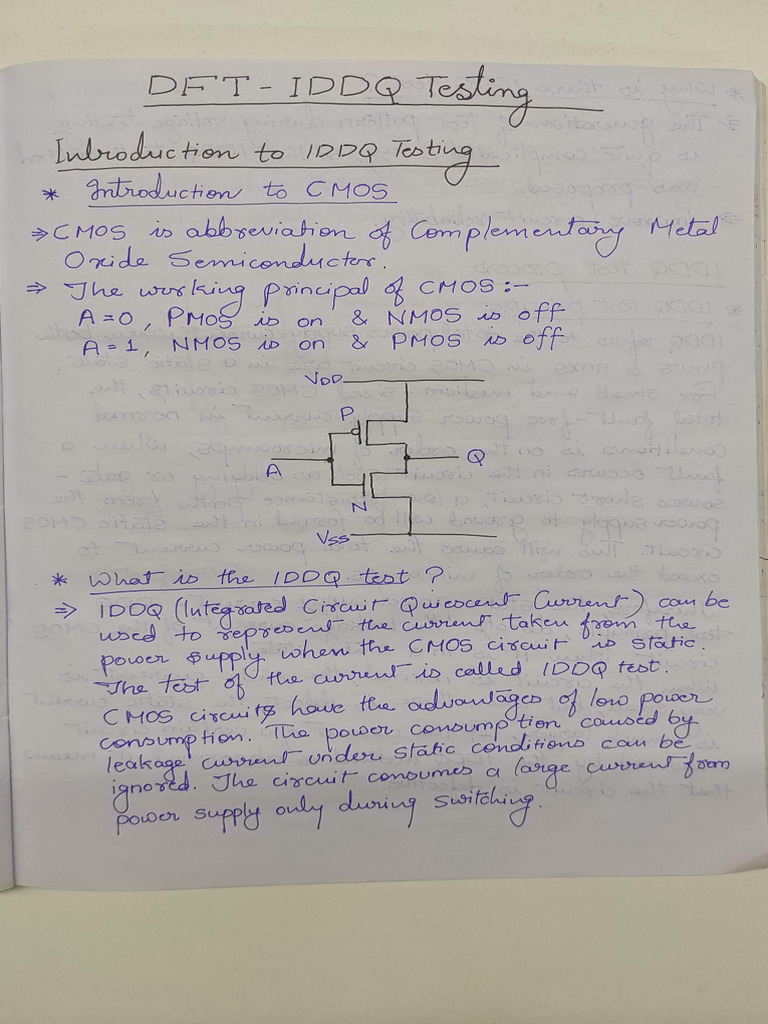 DFT - IDDQ Testing
Introduction to IDDQ Testing
* Introduction to CMOS
⇒ CMOS is abbreviation of Complementary Metal
Oxide Semiconductor.
⇒ The working principal of CMOS :-
A = 0 , PMOS is on & NMOS is off
A = 1, NMOS is on & PMOS is off
VDD
P
A
Q
N
VSS
* What is the IDDQ test ?
⇒ IDDQ (Integrated Circuit Quiescent Current) can be
used to represent the current taken from the
power supply when the CMOS circuit is static.
The test of the current is called IDDQ test.
CMOS circuits have the advantages of low power
consumption. The power consumption caused by
leakage current under static conditions can be
ignored. The circuit consumes a large current from
power supply only during switching.